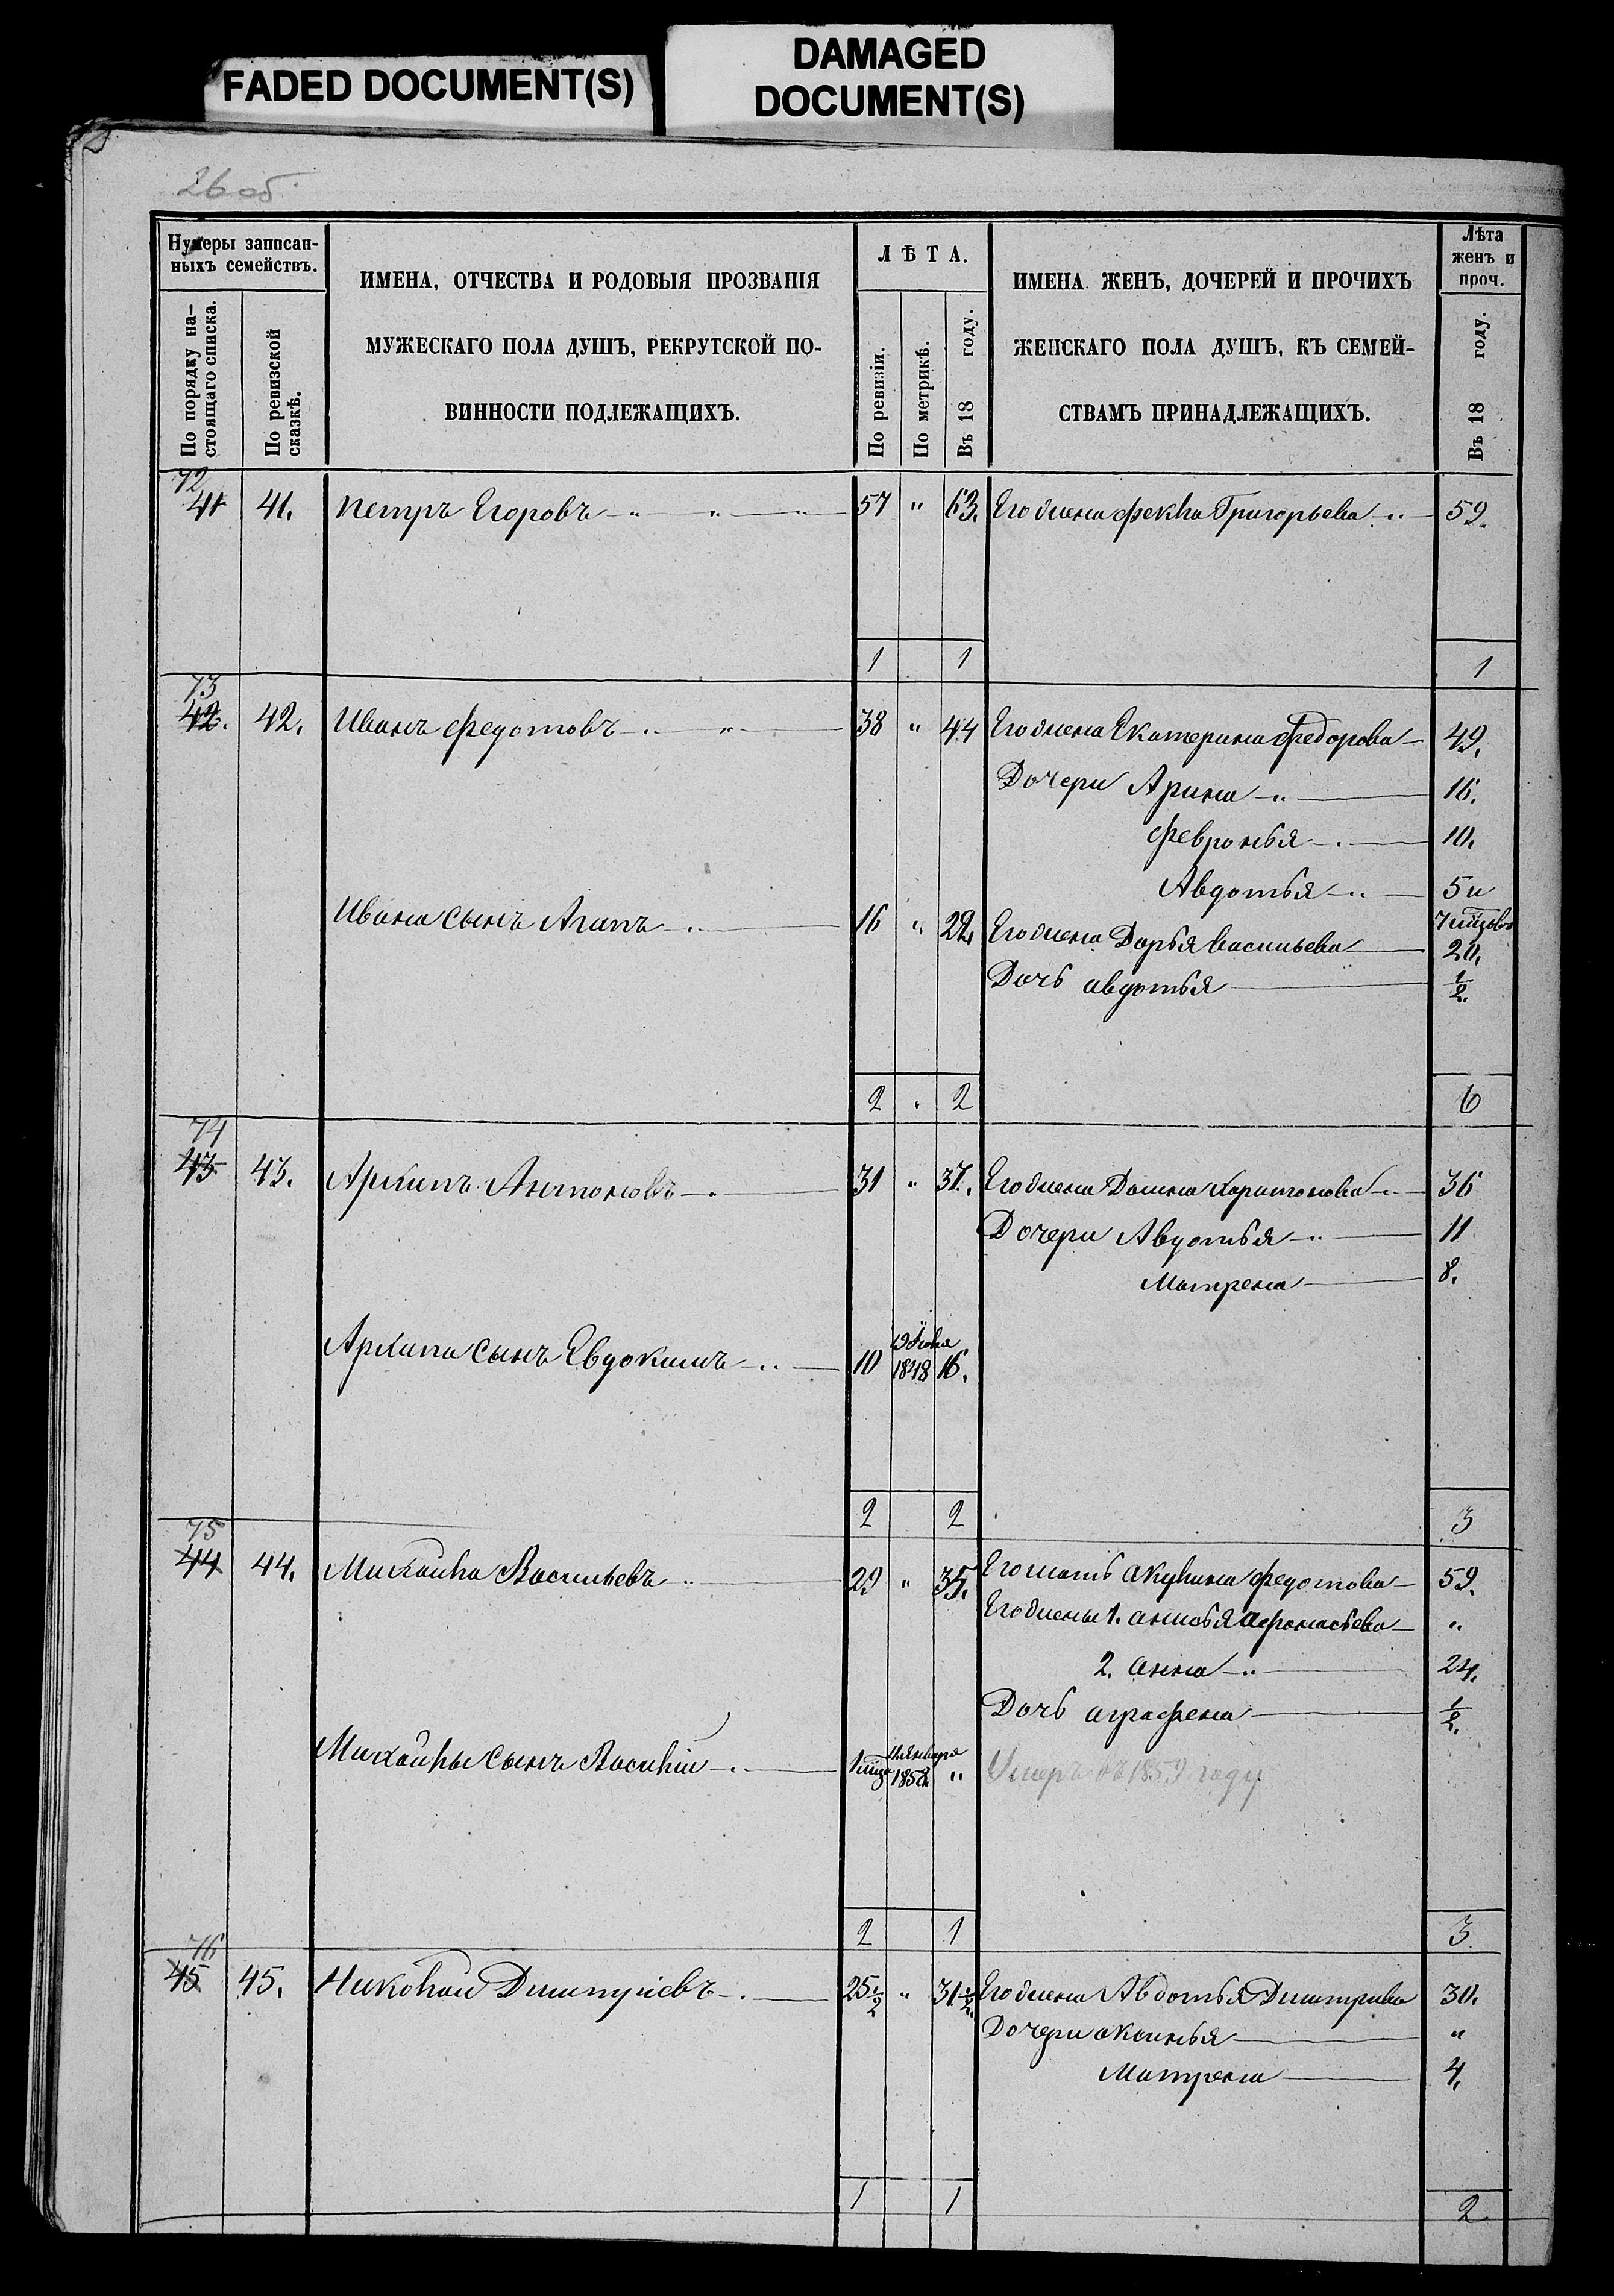 FADED DOCUMENT(S)
DAMAGED
DOCUMENT(S)
26 об
Нумеры записан-
ныхъ семействъ.
По порядку на-
стоящаго списка.
По ревизской
сказкѣ.
ИМЕНА, ОТЧЕСТВА И РОДОВЫЯ ПРОЗВАНІЯ
МУЖЕСКАГО ПОЛА ДУШЪ, РЕКРУТСКОЙ ПО-
ВИННОСТИ ПОДЛЕЖАЩИХЪ.
ЛѢТА.
По ревизіи.
По метрикѣ.
Въ 18 году.
ИМЕНА ЖЕНЪ, ДОЧЕРЕЙ И ПРОЧИХЪ
ЖЕНСКАГО ПОЛА ДУШЪ, КЪ СЕМЕЙ-
СТВАМЪ ПРИНАДЛЕЖАЩИХЪ.
Лѣта
женъ и
проч.
Въ 18 году.
72
41 41. Петръ Егоровъ 57 " 63. Его жена Фекла Григорьева 59.
1 1 1
73
42. 42. Иванъ Федотовъ 38 " 44 Его жена Екатерина Федорова 49.
Дочери Арина 16.
Февронья 10.
Авдотья 5 и
Ивана сынъ Агапъ 16 " 22. Его жена Дарья Васильева 20.
Дочь Авдотья 1/2.
2 " 2 6
74
43 43. Архипъ Антоновъ 31 " 37. Его жена Домна Харитонова 36
Дочери Авдотья 11
Матрена 8.
Архипа сынъ Евдокимъ 10 1848 16.
2 2 3
75
44 44. Михайла Васильевъ 29 " 35. Его мать Акулина Федотова 59.
Его жены 1. Анисья Афонасьева "
2. Анна 24.
Дочь Аграфена 1/2.
Михайлы сынъ Василій января 1858 " Умеръ въ 1859 году
2 1 3
76
45 45. Николай Дмитріевъ 25 1/2 " 31 1/2. Его жена Авдотья Дмитрива 30.
Дочери Аксинья "
Матрена 4.
1 1 2